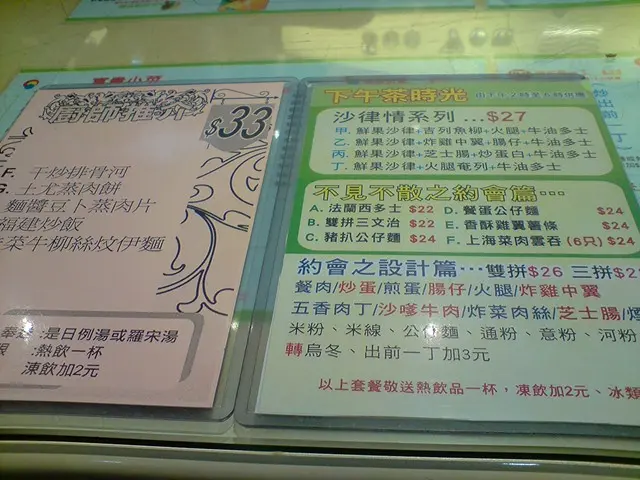 $33
F. 干炒排骨河
G. 土尤蒸肉餅
麵醬豆卜蒸肉片
福建炒飯
菜牛柳絲炆伊麵
:是日例湯或羅宋湯
:熱飲一杯
凍飲加2元
下午茶時光
沙律情系列...$27
甲. 鮮果沙律+吉列魚柳+火腿+牛油多士
乙. 鮮果沙律+炸雞中翼+腸仔+牛油多士
丙. 鮮果沙律+芝士腸+炒蛋白+牛油多士
丁. 鮮果沙律+火腿奄列+牛油多士
不見不散之約會篇...
A. 法蘭西多士 $22 D. 餐蛋公仔麵 $24
B. 雙拼三文治 $22 E. 香酥雞翼薯條 $24
C. 豬扒公仔麵 $24 F. 上海菜肉雲吞(6只) $24
約會之設計篇...雙拼$26 三拼$2
餐肉/炒蛋/煎蛋/腸仔/火腿/炸雞中翼
五香肉丁/沙嗲牛肉/炸菜肉絲/芝士腸/
米粉、米線、公仔麵、通粉、意粉、河粉
轉烏冬、出前一丁加3元
以上套餐敬送熱飲品一杯，凍飲加2元、冰類